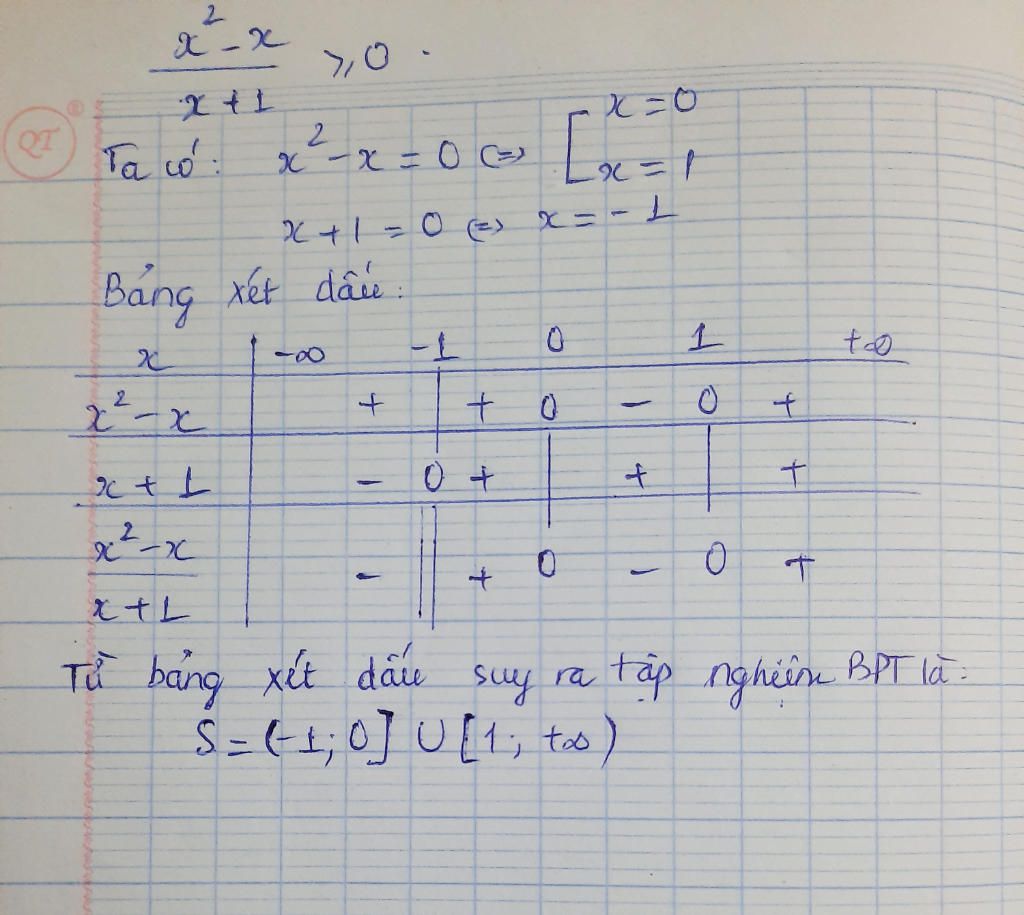 x² - x
x + 1 ≥ 0.
QT ®
Ta có: x² - x = 0 <=> [ x = 0
x = 1
x + 1 = 0 <=> x = -1
Bảng xét dấu:
x | -∞ -1 0 1 +∞
x² - x | + | + 0 - 0 +
x + 1 | - 0 + | + | +
x² - x
x + 1 | - || + 0 - 0 +
Từ bảng xét dấu suy ra tập nghiệm BPT là:
S = (-1; 0] ∪ [1; +∞)